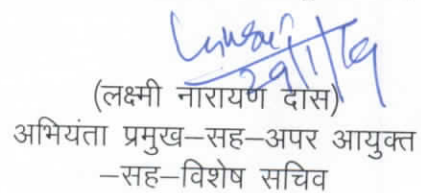 29/1/19
(लक्ष्मी नारायण दास)
अभियंता प्रमुख–सह–अपर आयुक्त
–सह–विशेष सचिव